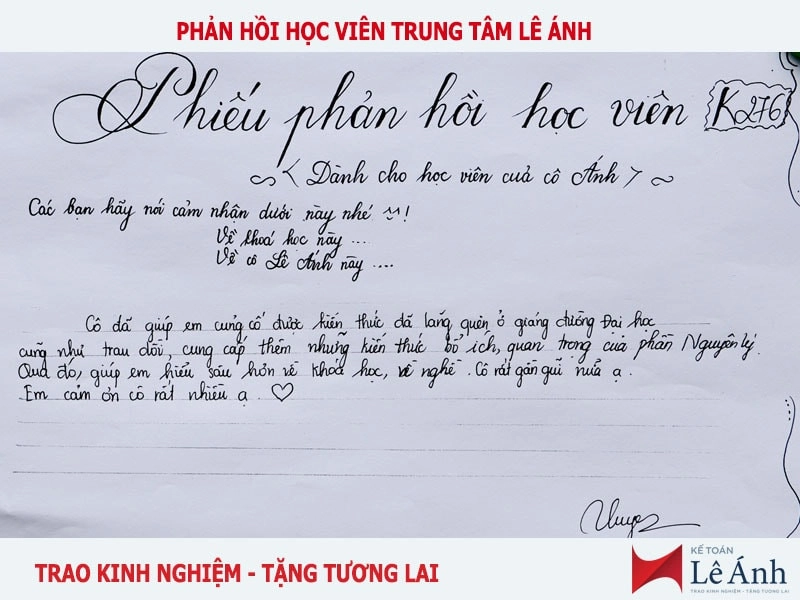 PHẢN HỒI HỌC VIÊN TRUNG TÂM LÊ ÁNH
Phiếu phản hồi học viên K276
< Dành cho học viên cuả cô Ánh >
Các bạn hãy nói cảm nhận dưới này nhé !
Về khoá học này ....
Về cô Lê Ánh này ....
Cô đã giúp em cung cố được kiến thức đã lang quên ở giang đường Đại học
cũng như trau dồi, cung cấp thêm những kiến thức bổ ích, quan trọng của phần Nguyên lý.
Qua đó, giúp em hiểu sâu hơn về khoá học, về nghề. Cô rất gần gũi nưã ạ.
Em cảm ơn cô rất nhiều ạ. ♡
TRAO KINH NGHIỆM - TẶNG TƯƠNG LAI
KẾ TOÁN
Lê Ánh
TRAO KINH NGHIỆM - TẶNG TƯƠNG LAI